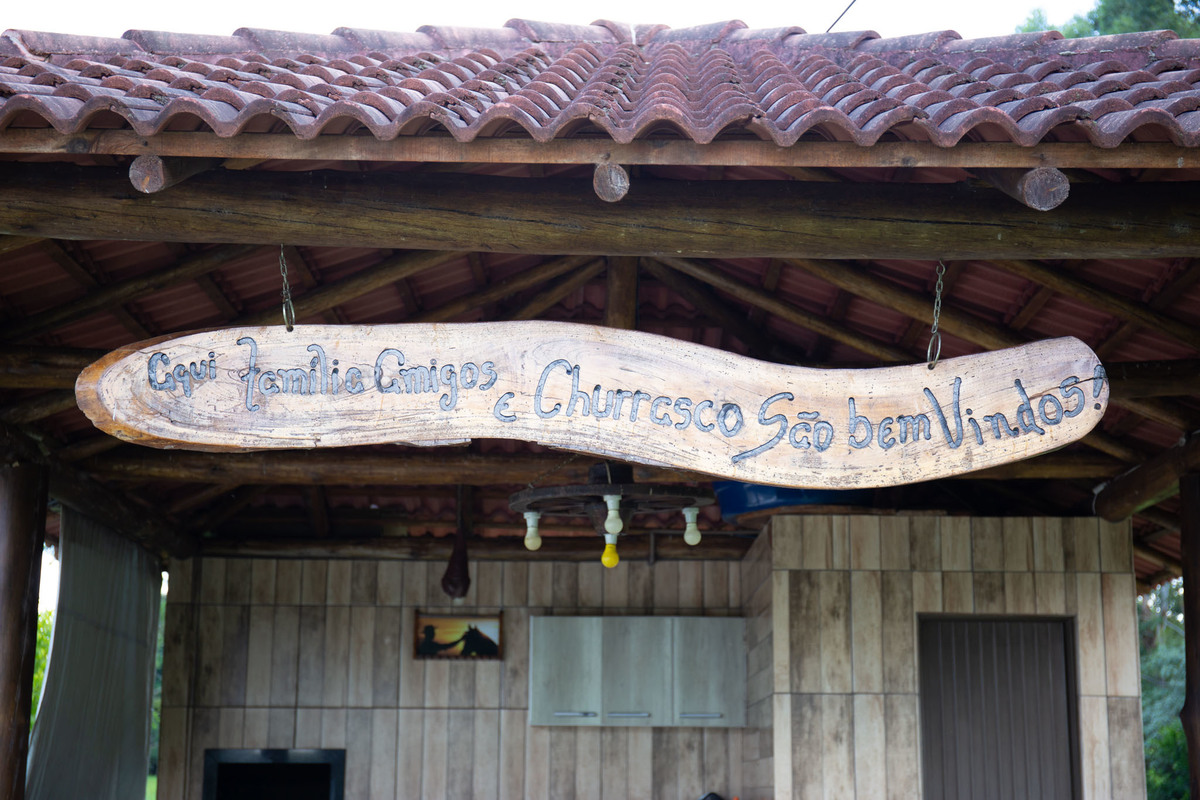 Aqui Familia Amigos e Churrasco São bem Vindos!